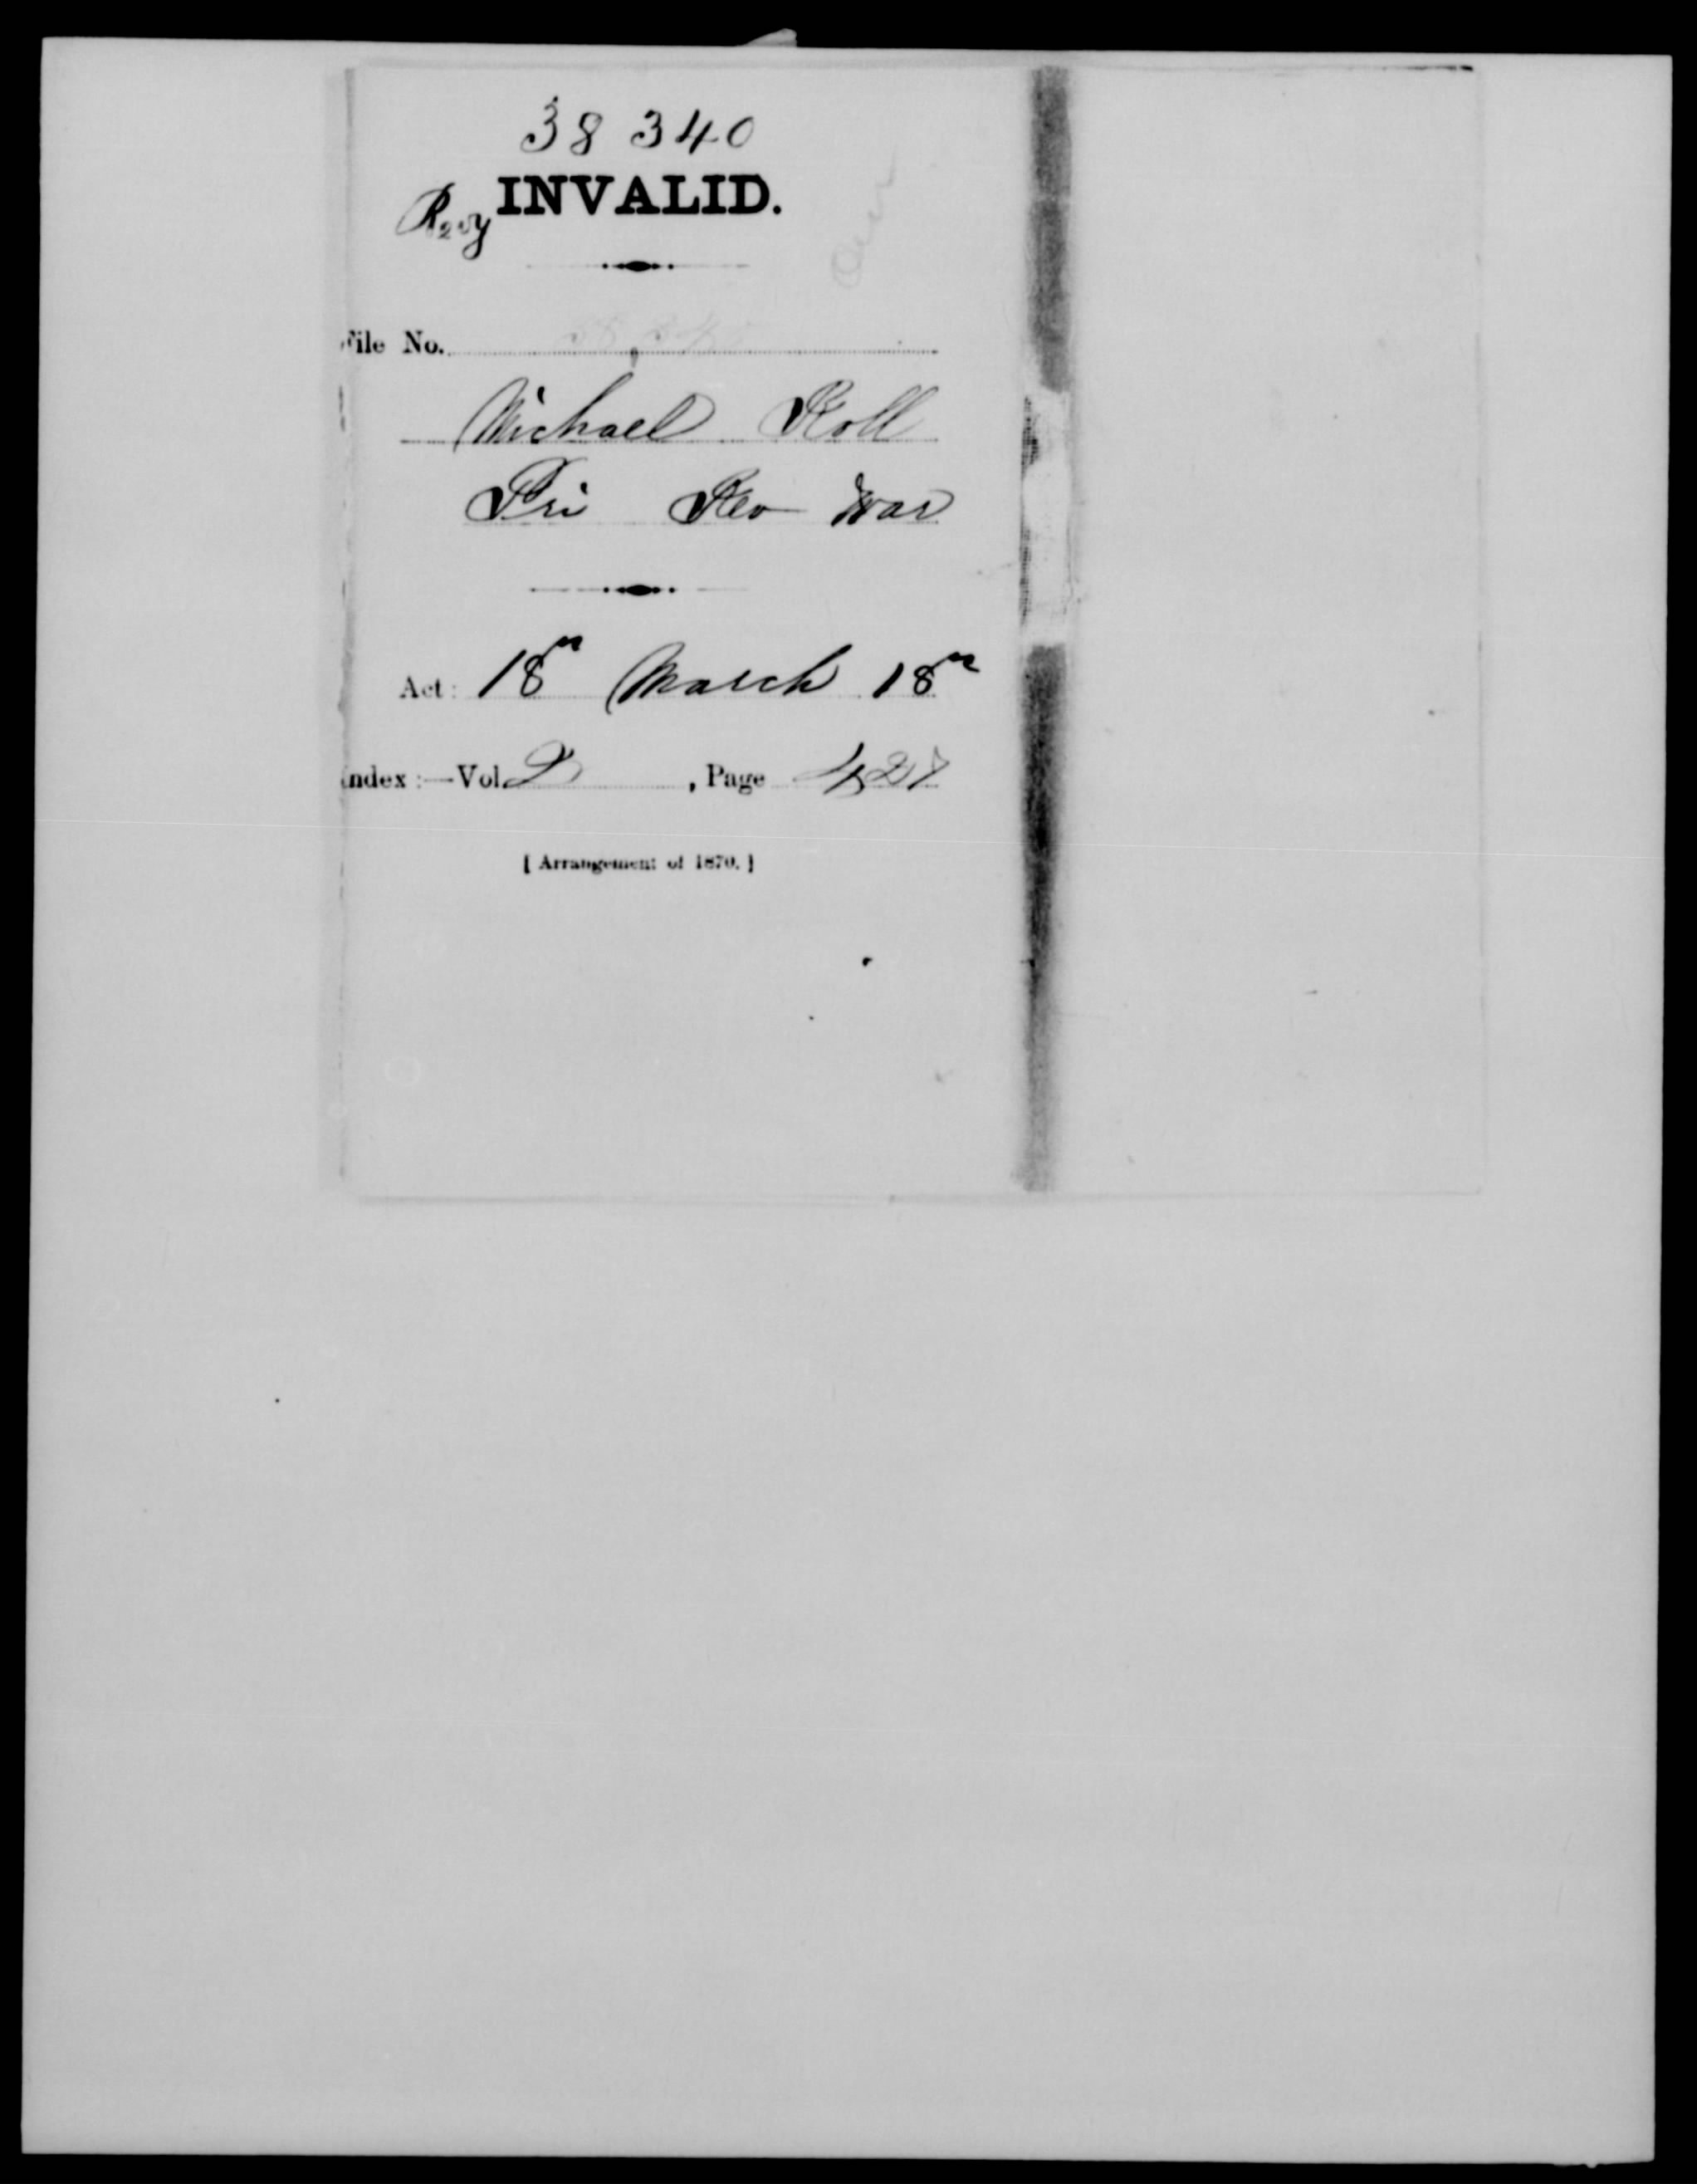 38 340
INVALID.
File No. 38,340
Michael Roll
Pri Rev War
Act: 18th March 18th
Index:—Vol. 2, Page 427
[Arrangement of 1870.]